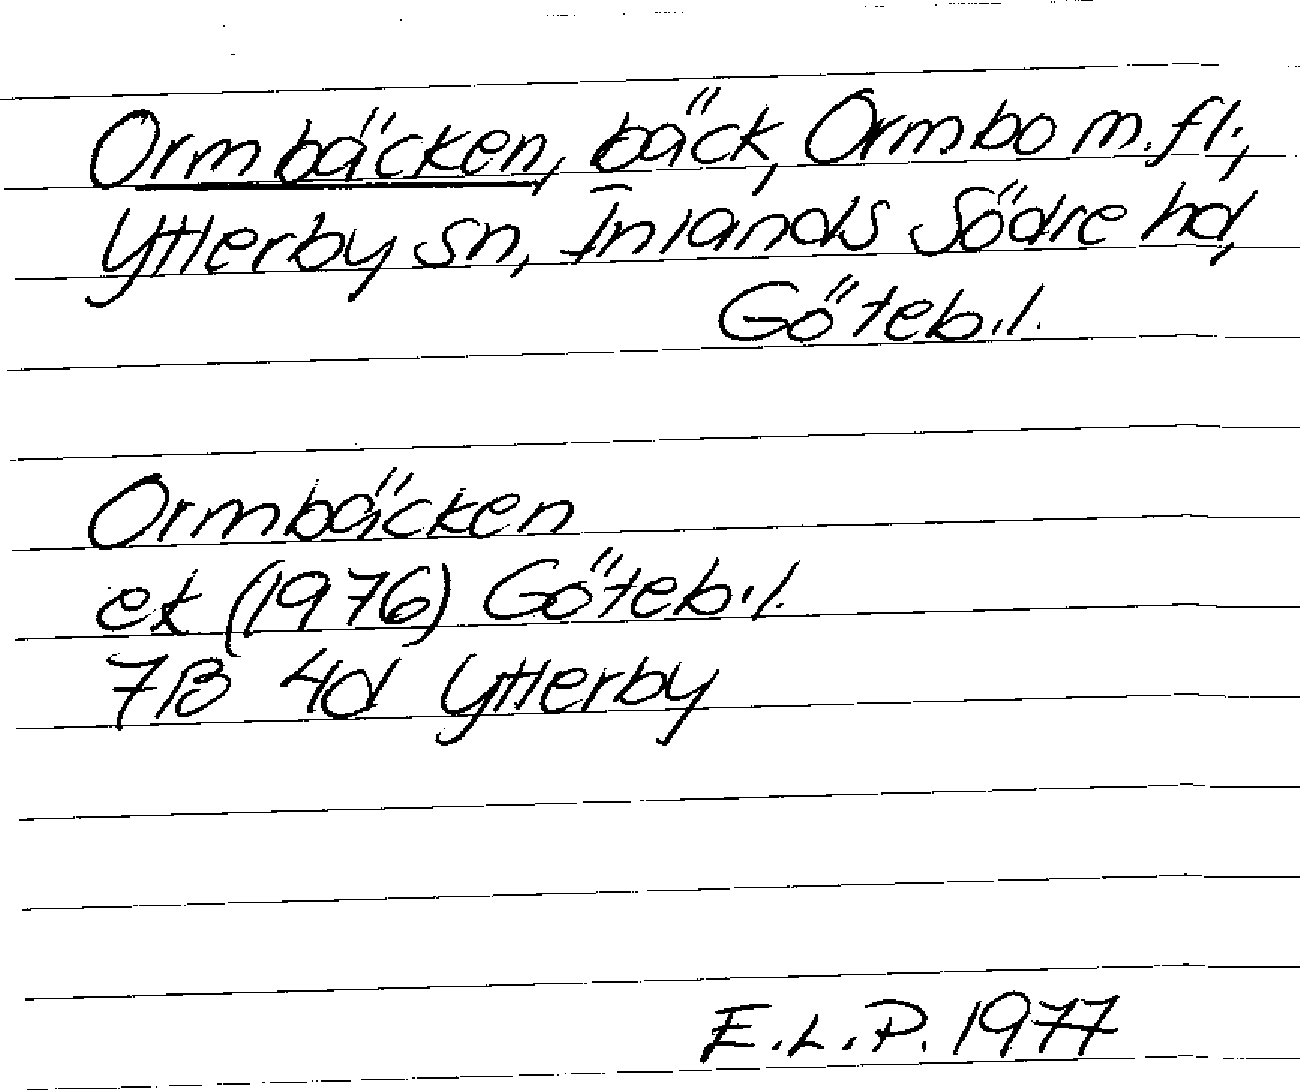 Ormbäcken, bäck, Ormbo m.fl.,
Ytterby sn, Inlands Södre hd,
Göteb.l.
Ormbäcken
ek (1976) Göteb.l.
7B 4d Ytterby
E.L.P. 1977